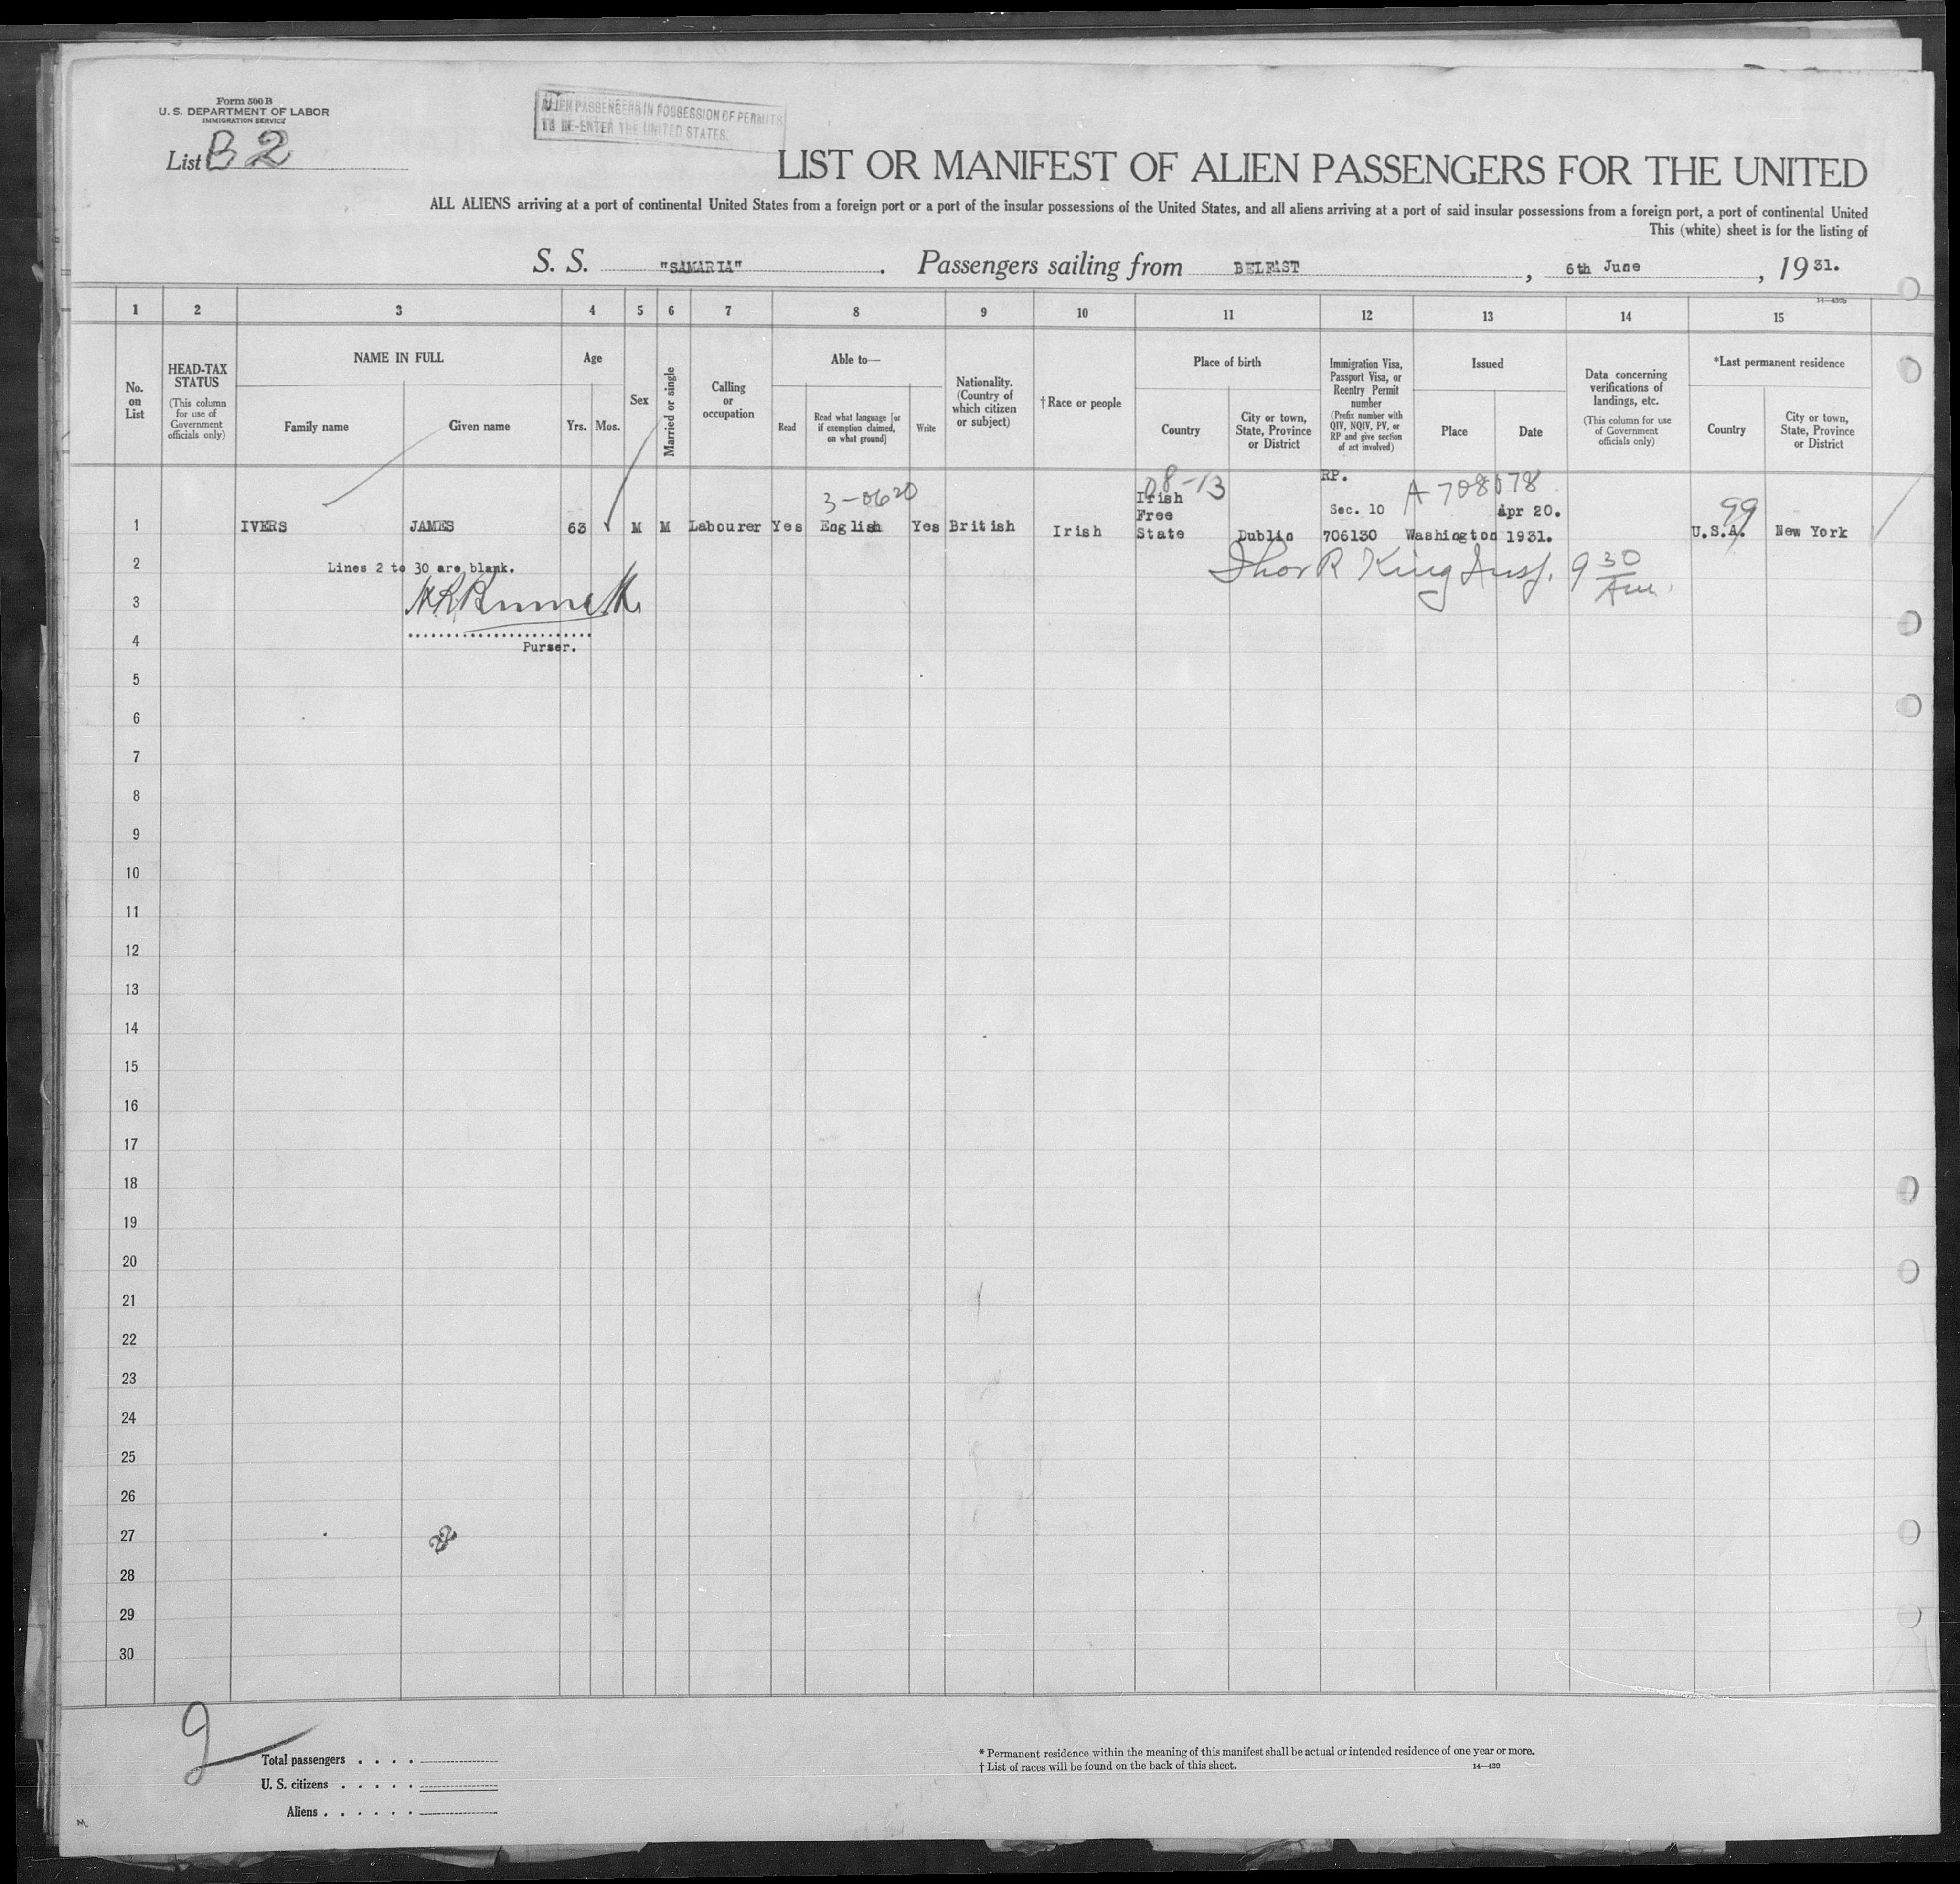 Form 500 B
U. S. DEPARTMENT OF LABOR
IMMIGRATION SERVICE
List B 2
ALIEN PASSENGERS IN POSSESSION OF PERMITS
TO RE-ENTER THE UNITED STATES.
LIST OR MANIFEST OF ALIEN PASSENGERS FOR THE UNITED
ALL ALIENS arriving at a port of continental United States from a foreign port or a port of the insular possessions of the United States, and all aliens arriving at a port of said insular possessions from a foreign port, a port of continental United
This (white) sheet is for the listing of
S. S. "SAMARIA". Passengers sailing from BELFAST, 6th June, 1931.
14—430b
1 2 3 4 5 6 7 8 9 10 11 12 13 14 15
No. on List
HEAD-TAX STATUS
(This column for use of Government officials only)
NAME IN FULL
Family name
Given name
Age
Yrs. Mos.
Sex
Married or single
Calling or occupation
Able to—
Read
Read what language [or if exemption claimed, on what ground]
Write
Nationality. (Country of which citizen or subject)
†Race or people
Place of birth
Country
City or town, State, Province or District
Immigration Visa, Passport Visa, or Reentry Permit number
(Prefix number with QIV, NQIV, PV, or RP and give section of act involved)
Issued
Place
Date
Data concerning verifications of landings, etc.
(This column for use of Government officials only)
*Last permanent residence
Country
City or town, State, Province or District
3-0620
08-13
RP.
A 708078
99
1 IVERS JAMES 63 M M Labourer Yes English Yes British Irish Irish Free State Dublin Sec. 10 706130 Washington Apr 20. 1931. U.S.A. New York
2 Lines 2 to 30 are blank.
R King Insp. 9 30
Am.
3
4 Purser.
5
6
7
8
9
10
11
12
13
14
15
16
17
18
19
20
21
22
23
24
25
26
27
28
29
30
Total passengers . . . .
U. S. citizens . . . . .
Aliens . . . . . .
* Permanent residence within the meaning of this manifest shall be actual or intended residence of one year or more.
† List of races will be found on the back of this sheet.
14—430
M